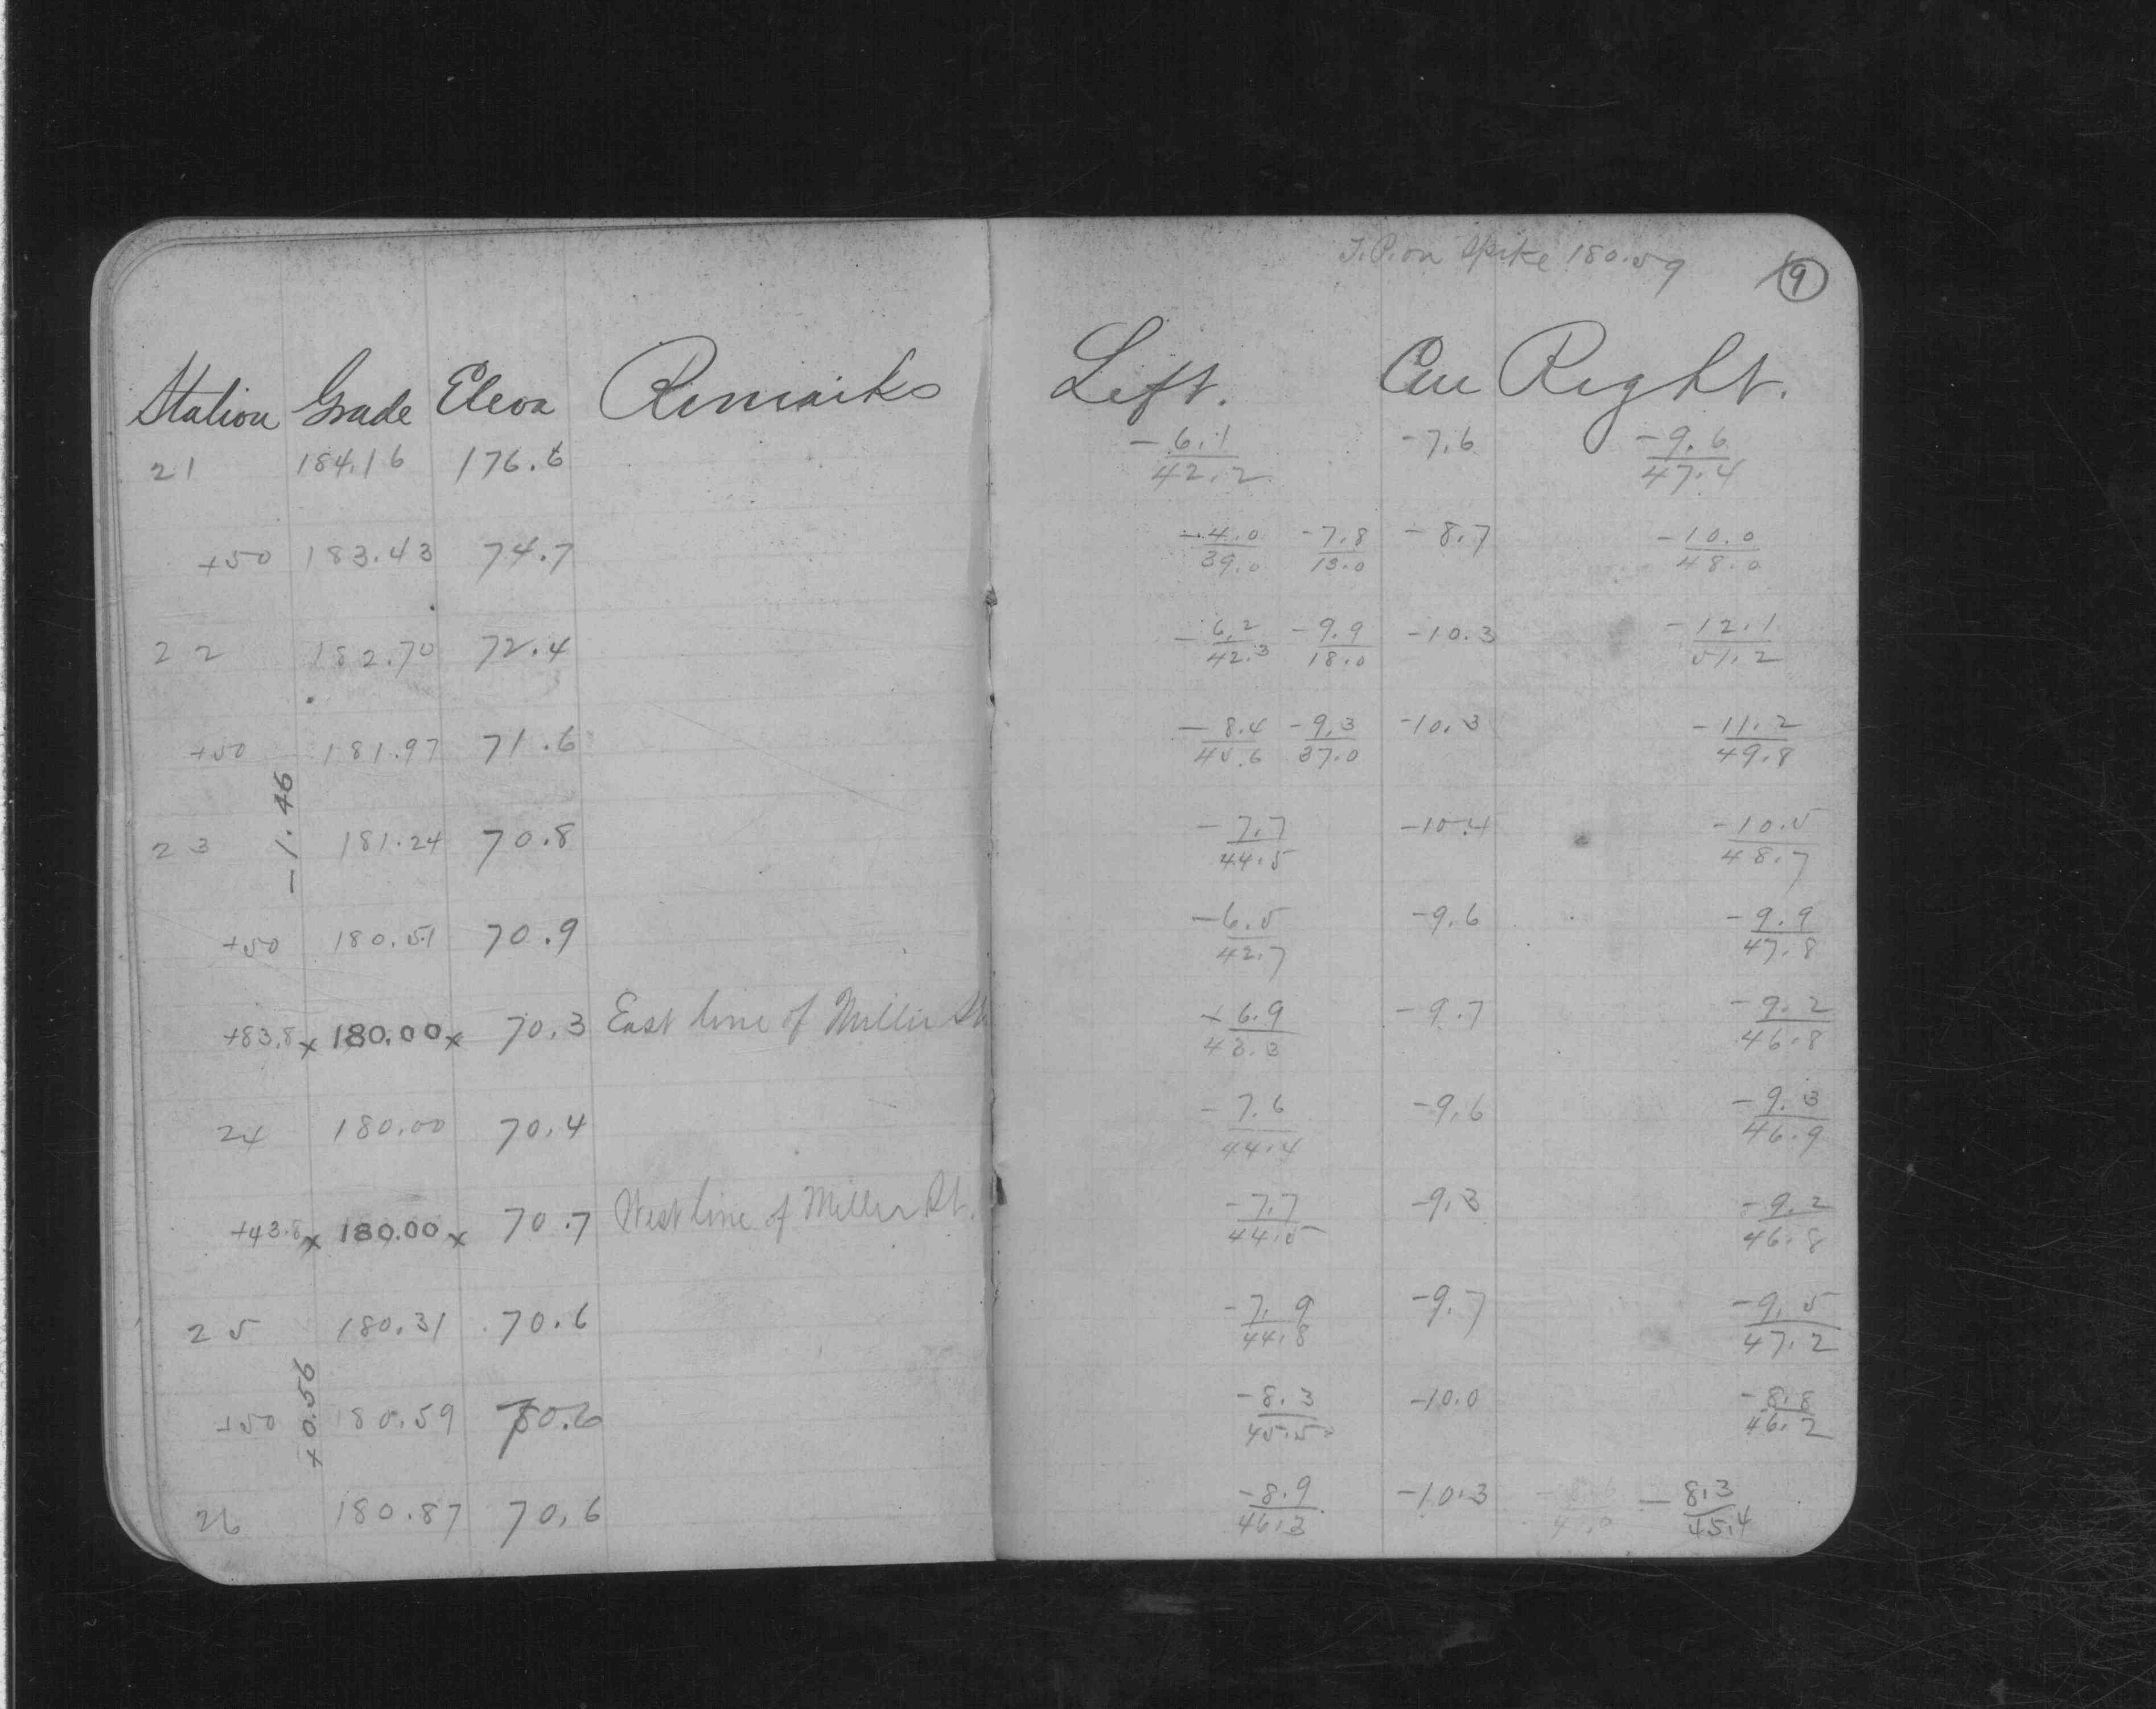 T.P. on Spike 180.59 9
Station Grade Eleva Remarks Left. Cen Right.
21 184.16 176.6 -6.1/42.2 -7.6 -9.6/47.4
+50 183.43 74.7 -4.0/39.0 -7.8/13.0 -8.7 -10.0/48.0
22 182.70 72.4 -6.2/42.3 -9.9/18.0 -10.3 -12.1/51.2
+50 181.97 71.6 -8.4/45.6 -9.3/37.0 -10.3 -11.2/49.8
-1.46
23 181.24 70.8 -7.7/44.5 -10.4 -10.5/48.7
+50 180.51 70.9 -6.5/42.7 -9.6 -9.9/47.8
+83.8 x 180.00 x 70.3 East line of Miller St. 6.9/43.3 -9.7 -9.2/46.8
24 180.00 70.4 -7.6/44.4 -9.6 -9.3/46.9
+43.8 x 180.00 x 70.7 West line of Miller St. -7.7/44.5 -9.3 -9.2/46.8
25 180.31 70.6 -7.9/44.8 -9.7 -9.5/47.2
+0.56
+50 180.59 70.6 -8.3/45.5 -10.0 -8.8/46.2
26 180.87 70.6 -8.9/46.3 -10.3 -8.3/45.4